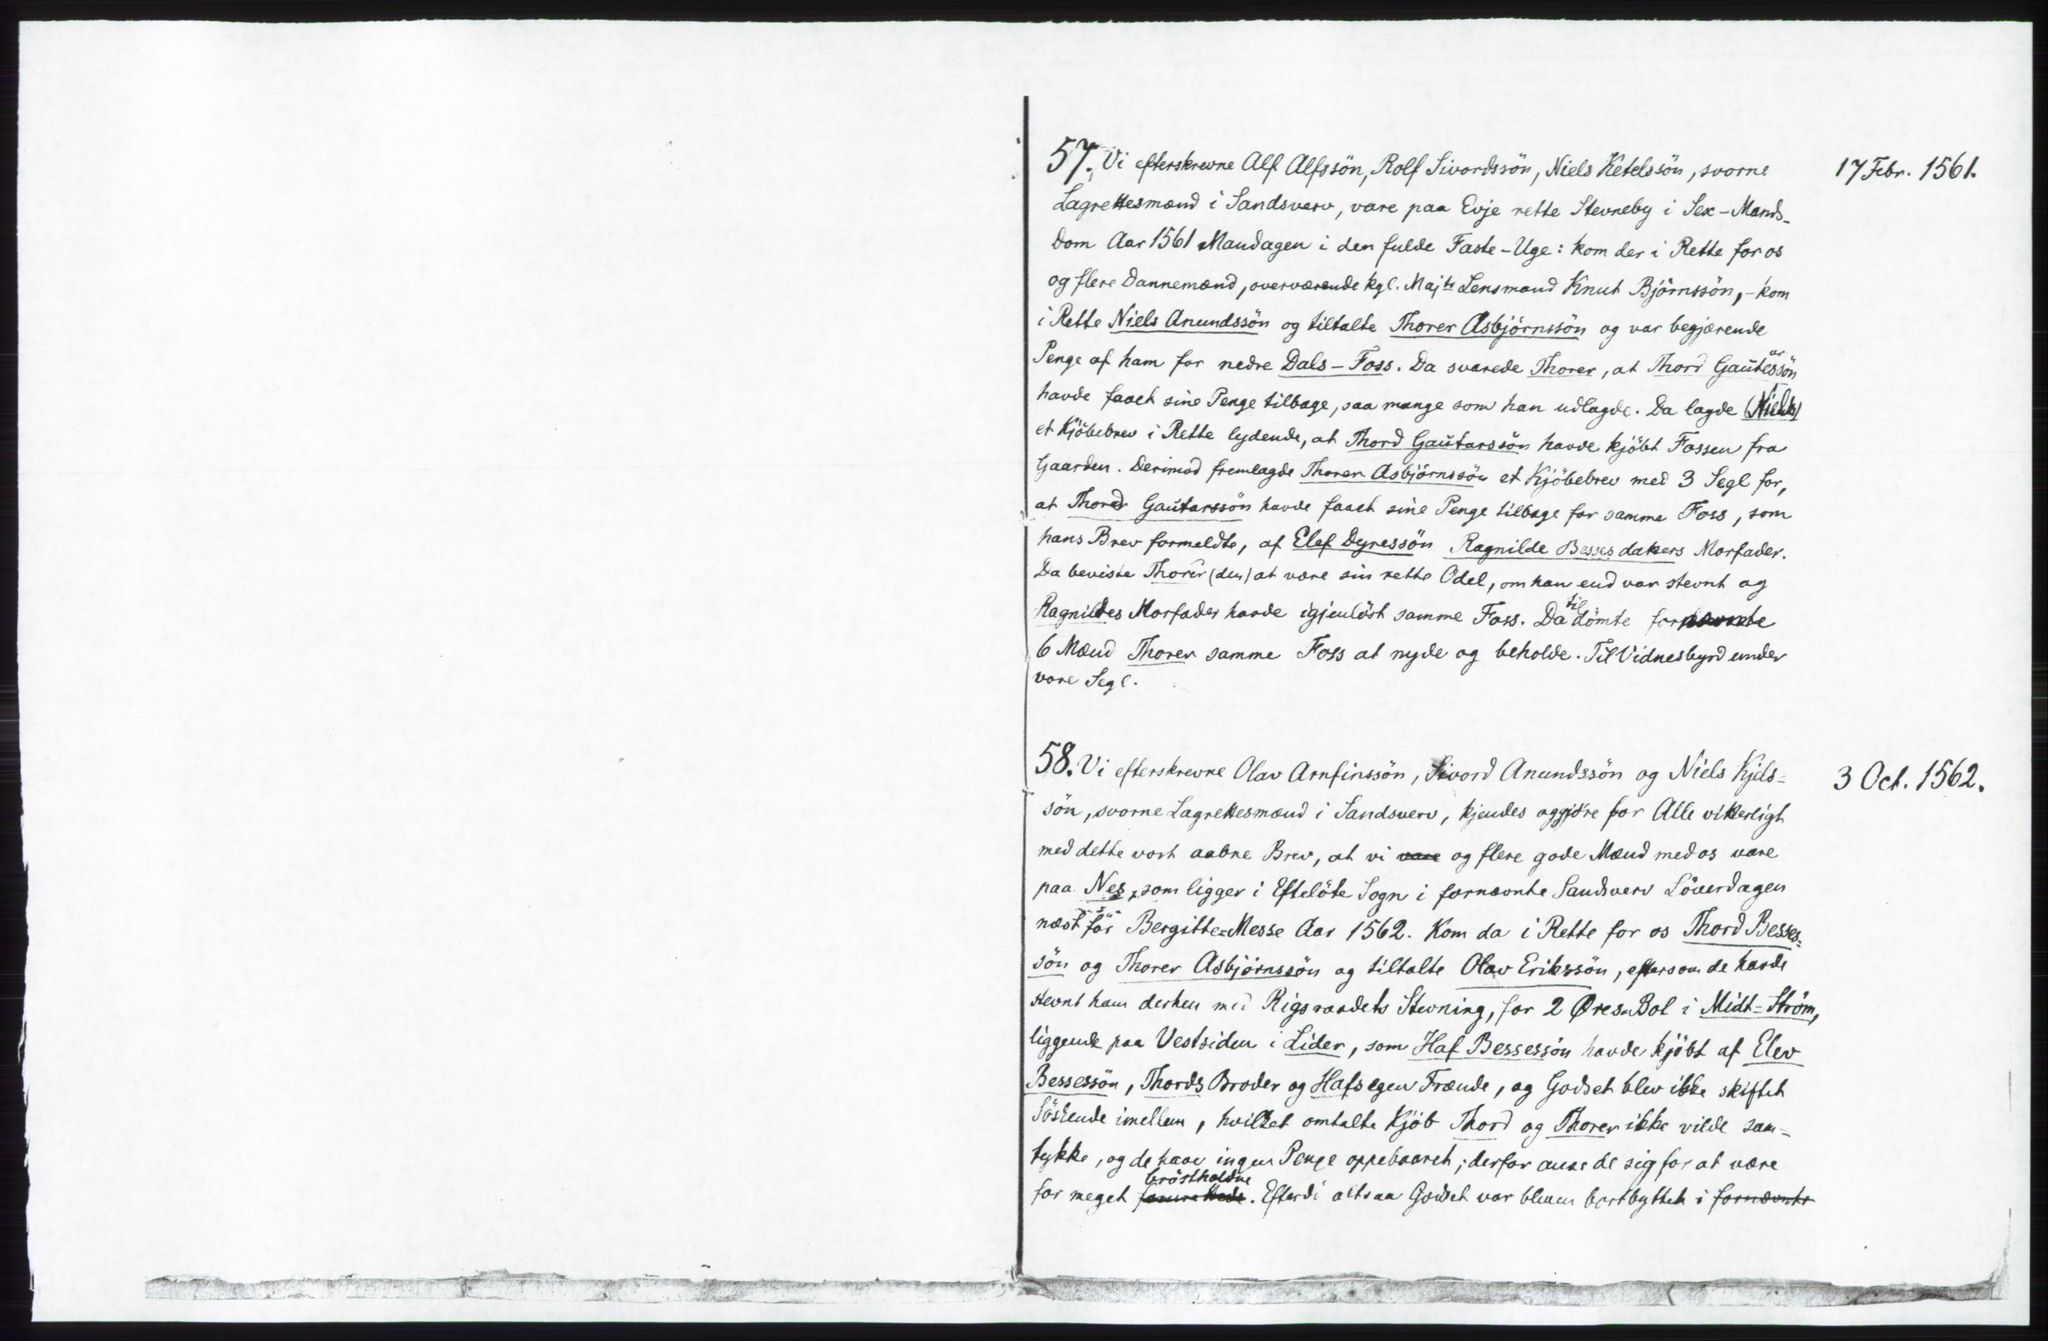 57. Vi efterskrevne Alf Alfssön, Rolf Sivordssön, Niels Ketelssön, svorne
17 Febr. 1561.
Lagrettesmænd i Sandsverv, vare paa Evje rette Stevneby i Sex-Mands-
dom Aar 1561 Mandagen i den fulde Faste-Uge: kom der i Rette for os
og flere Dannemænd, overværende kgl. Majts Lensmand Knut Björnssön, - kom
i Rette Niels Anundssön og tiltalte Thorer Asbjörnssön og var begjærende
Penge af ham for nedre Dals-Foss. Da svarede Thorer, at Thord Gautessön
ar
havde faaet sine Penge tilbage, saa mange som han udlagde. Da lagde (Niels)
et Kjöbebrev i Rette lydende, at Thord Gautarssön havde kjöbt Fossen fra
Gaarden. Derimod fremlagde Thorer Asbjörnssön et Kjöbebrev med 3 Segl for,
at Thord Gautarssön havde faaet sine Penge tilbage for samme Foss, som
hans Brev formeldte, af Elef Dyressön Ragnilde Bessesdakers Morfader.
Da beviste Thorer (den) at være sin rette Odel, om han end var stevnt og
Ragnildes Morfader havde igjenlöst samme Foss. Da tildömte fornævnte
6 Mænd Thorer samme Foss at nyde og beholde. Til Vidnesbyrd under
vore Segl.
58. Vi efterskrevne Olav Arnfinssön, Sivord Anundssön og Niels Kjels-
3 Oct. 1562.
sön, svorne Lagrettesmænd i Sandsverv, kjendes og gjöre for Alle vitterligt
med dette vort aabne Brev, at vi vare og flere gode Mænd med os vare
paa Nes, som ligger i Eftelöte Sogn i fornævnte Sandsverv Löverdagen
næst för Bergitte-Messe Aar 1562. Kom da i Rette for os Thord Besses-
sön og Thorer Asbjörnssön og tiltalte Olav Erikssön, eftersom de havde
stevnt ham derhen med Rigsraadets Stevning, for 2 Øres-Bol i Midt-Ström,
liggende paa Vestsiden i Lider, som Haf Bessessön havde kjöbt af Elev
Bessessön, Thords Broder og Hafs egen Frænde, og Godset blev ikke skiftet
Söskende imellem, hvilket omtalte Kjöb Thord og Thorer ikke vilde sam-
tykke, og de have ingen Penge oppebaaret; derfor ansee de sig for at være
bröstholdne
for meget forurettede. Efterdi altsaa Godset var bleven bortbyttet i fornævnte